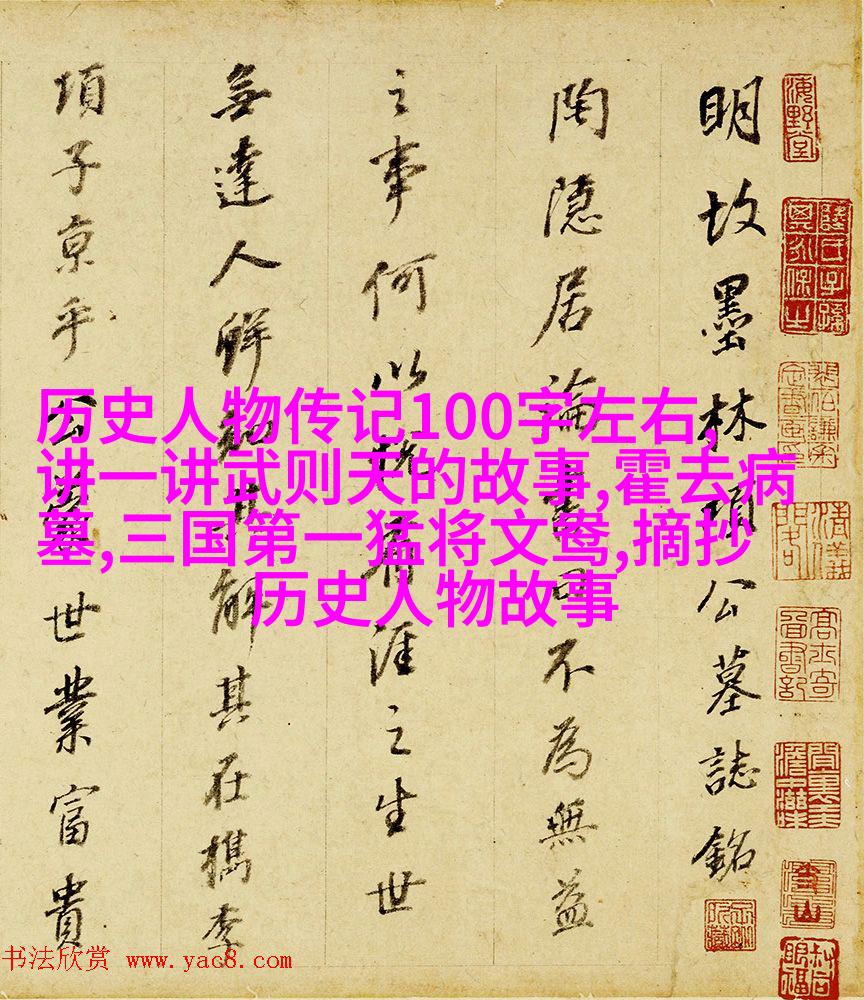 明故墨林項公墓誌銘
陶隱居論書曰不為無益
之事何以悅有涯之生世
無達人鮮知其解其在檇李
項子京乎公世業富貴
海野堂
历史人物传记100字左右,
讲一讲武则天的故事,霍去病
墓,三国第一猛将文鸯,摘抄
历史人物故事
书法欣赏 www.yac8.com